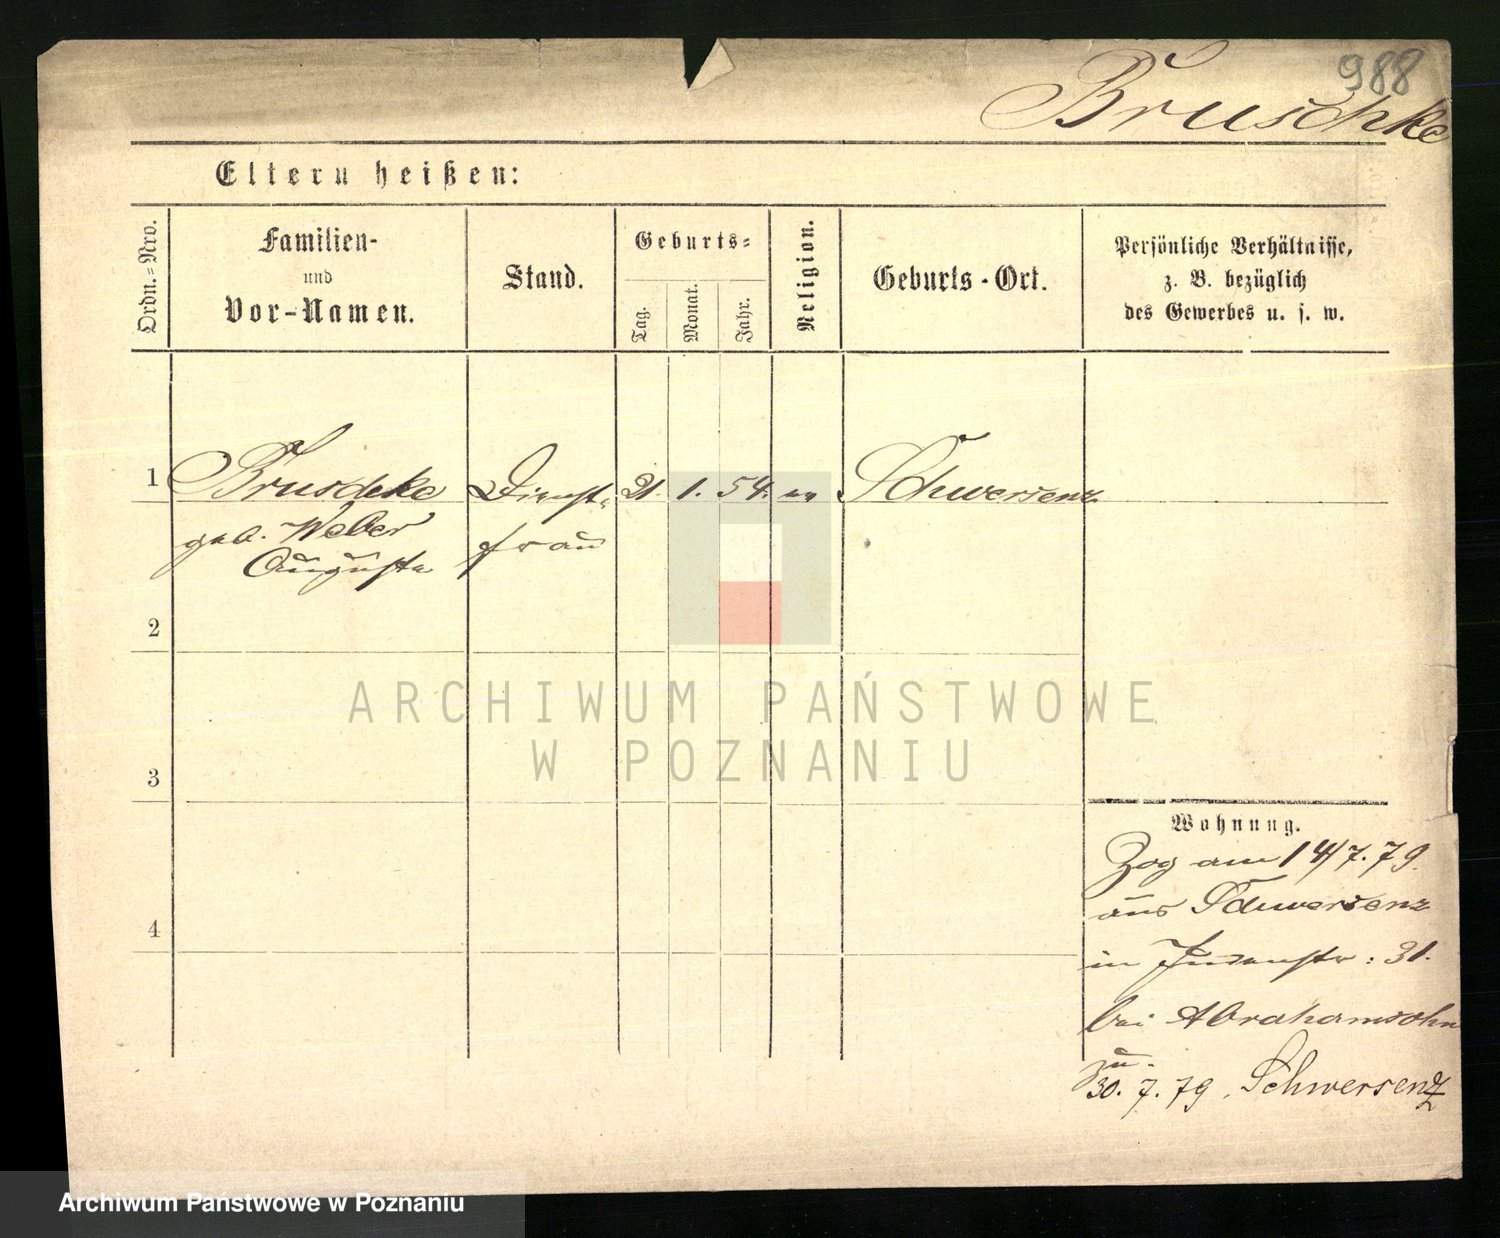 988
Bruschke
Eltern heißen:
Ordn.=Nro.
Familien-
und
Vor-Namen.
Stand.
Geburts=
Tag.
Monat.
Jahr.
Religion.
Geburts-Ort.
Persönliche Verhältnisse,
z. B. bezüglich
des Gewerbes u. s. w.
1 Bruschke Dienst= 21. 1. 54. ev Schwersenz
geb. Weber frau
Auguste
2
3
4
Wohnung.
Zog am 14/7.79.
aus Schwersenz
in Judenstr: 31.
bei Abrahamsohn
zu.
30. 7. 79. Schwersenz
ARCHIWUM PAŃSTWOWE
W POZNANIU
Archiwum Państwowe w Poznaniu